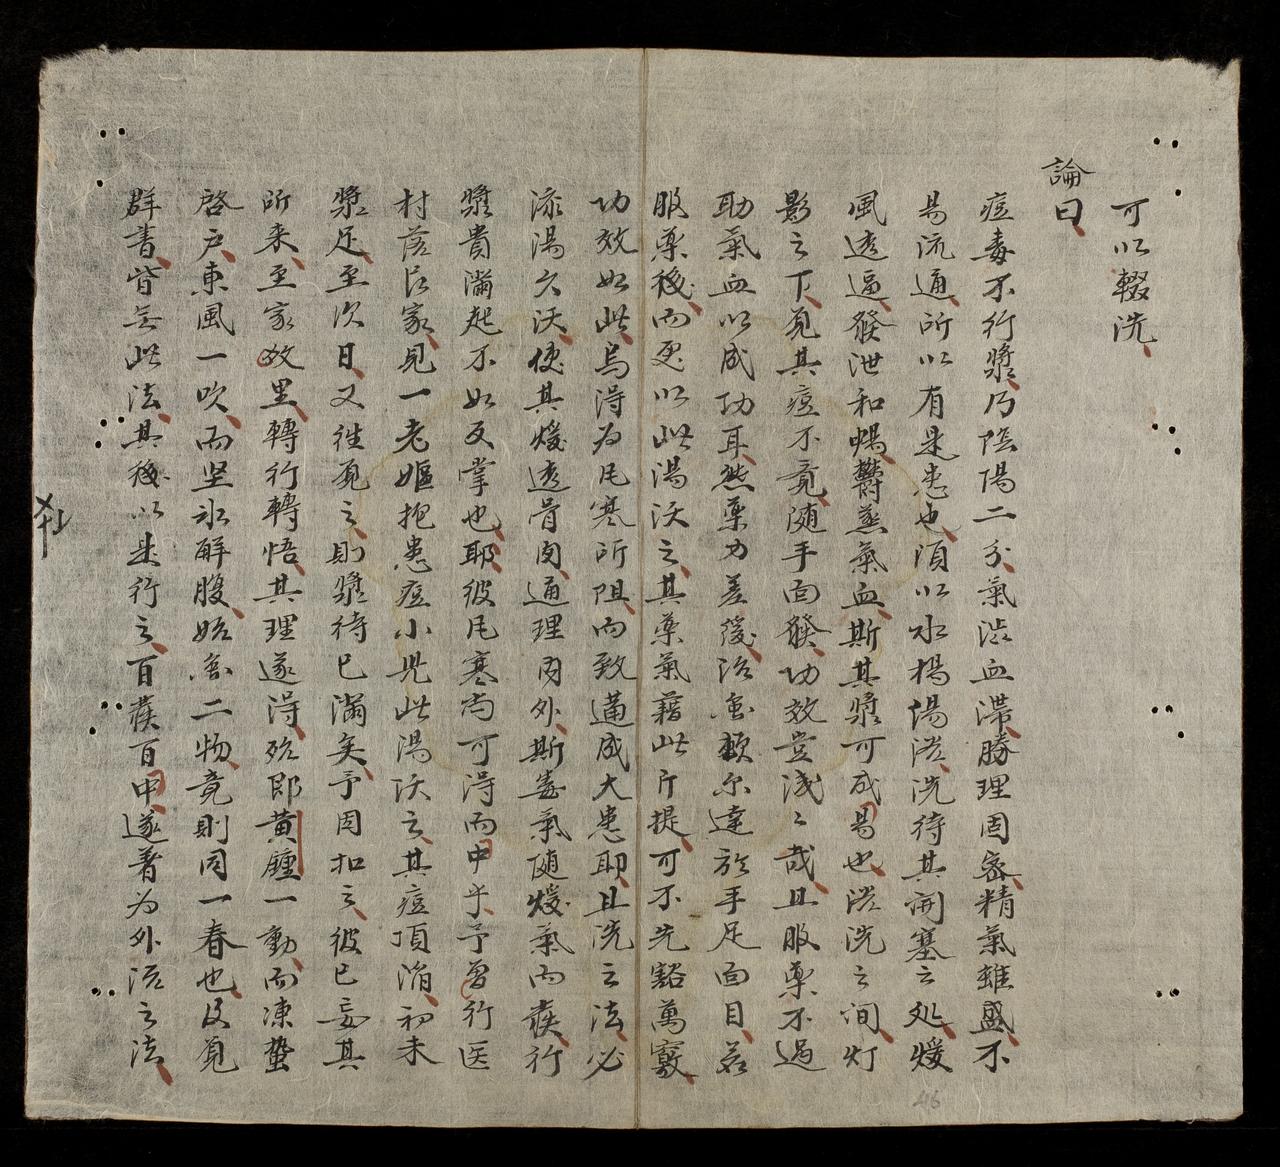 可以輟洗
論曰
痘毒不行漿乃陰陽二分氣澁血滯腠理固密精氣雖盛不
昜流通所以有是患也須以水楊湯淫洗待其開塞之処煖
風透逼發泄和暢欝蒸氣血斯其漿可成昜也淫洗之间灯
影之下覓其痘不竟随手而發功效豈淺〻哉且服藥不過
助氣血以成功耳然藥力差緩治患頼尔達於手足面目若
服藥後而更以此湯沃之其藥氣藉此斤提可不先豁萬竅
功效如此烏淂为凡寒所阻而致遘成大患耶且洗之法必
添湯久沃使其煖透骨肉通理内外斯毒氣随煖氣而發行
漿貴滿起不如反掌也耶彼凡寒尚可淂而中乎予曾行医
村落民家見一老嫗抱患痘小児此湯沃之其痘頂滑初未
漿足至次日又徃覓之則漿待已滿矣予因扣之彼已妄其
所来至家故里轉行轉悟其理遂淂殆即黄鍾一動而凍蟄
啓户東風一吹而坚氷解腹始知二物竟則同一春也及覓
群書皆無此法其後以是行之百發百中遂著为外治之法